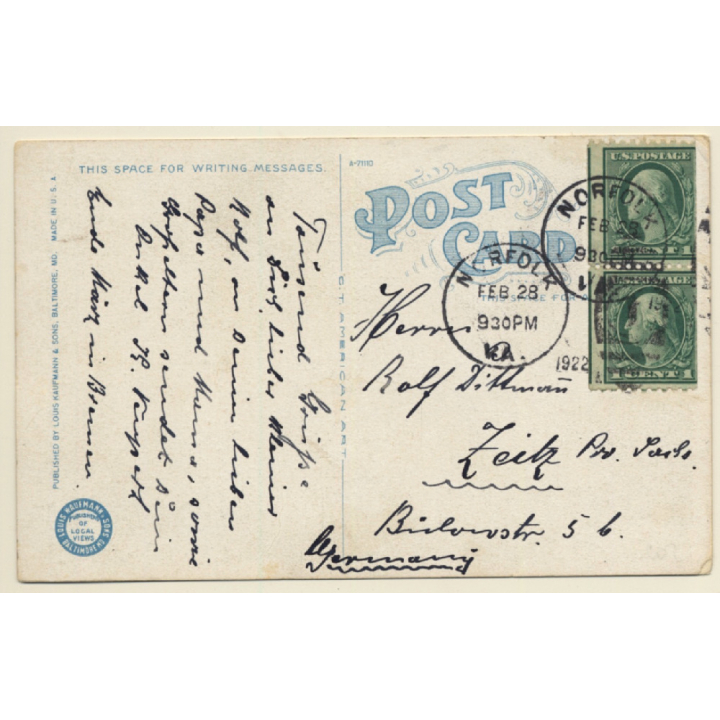 THIS SPACE FOR WRITING MESSAGES.
A-71110
POST CARD
THIS SPACE FOR
C.T. AMERICAN ART
PUBLISHED BY LOUIS KAUFMANN & SONS, BALTIMORE, MD. MADE IN U.S.A.
LOUIS KAUFMANN & SONS
BALTIMORE MD.
PUBLISHERS
OF
LOCAL
VIEWS
Tausend Grüße
an Dich, lieber kleiner
Rolf, an Deine lieben
Papa und Mama, sowie
Großeltern sendet Dein
Onkel
Ende März in Bremen.
Herrn
Rolf Dittmann
Zeitz Pr. Sachs.
Bülowstr. 5 b.
Germany
NORFOLK
FEB 28
930PM
VA.
1922
NORFOLK
FEB 28
930PM
VA.
U.S. POSTAGE
1 CENT 1